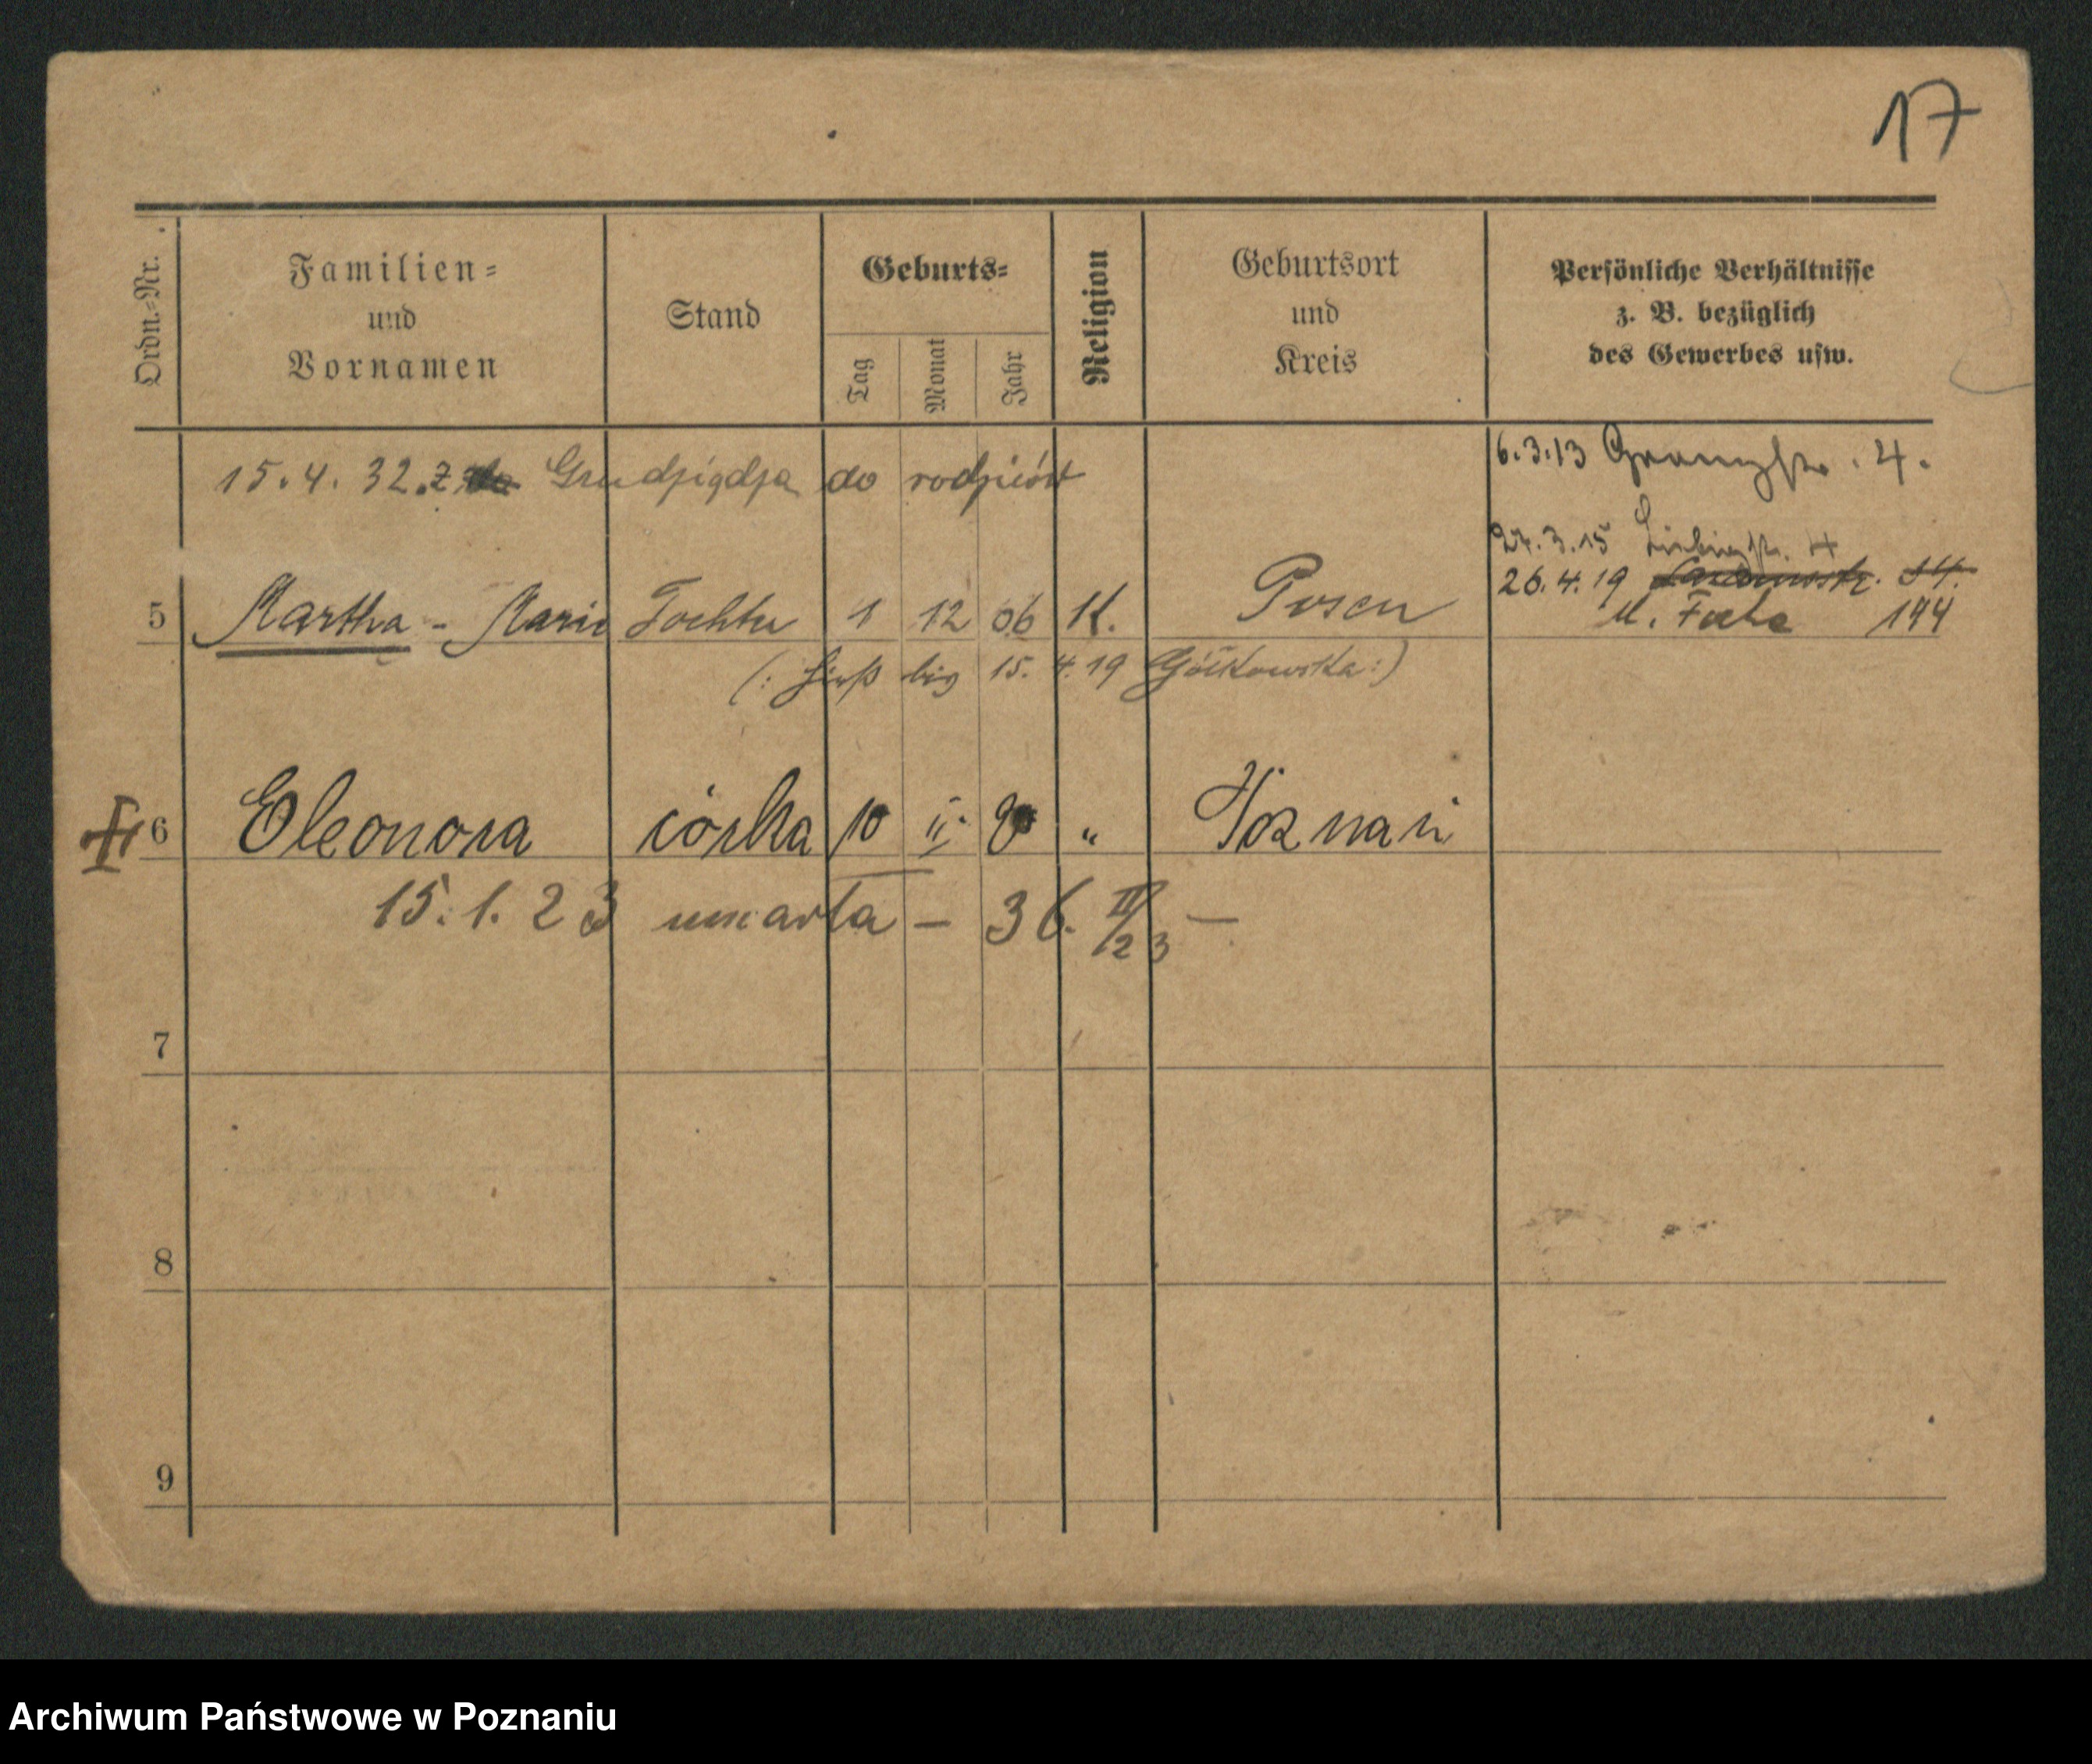 17
Ordn.-Nr.
Familien-
und
Vornamen
Stand
Geburts-
Tag
Monat
Jahr
Religion
Geburtsort
und
Kreis
Persönliche Verhältnisse
z. B. bezüglich
des Gewerbes usw.
15.4.32. z Grudziądza do rodziców
6.3.13 . 4.
24.3.15
26.4.19 34.
M. Focha 144
5 Martha - Marie Tochter 1 12 06 K. Posen
(: hieß bis 15.4.19 :)
6 Eleonora córka 10 II. " Poznań
15.1.23 umarła — 36. II/23 —
7
8
9
Archiwum Państwowe w Poznaniu